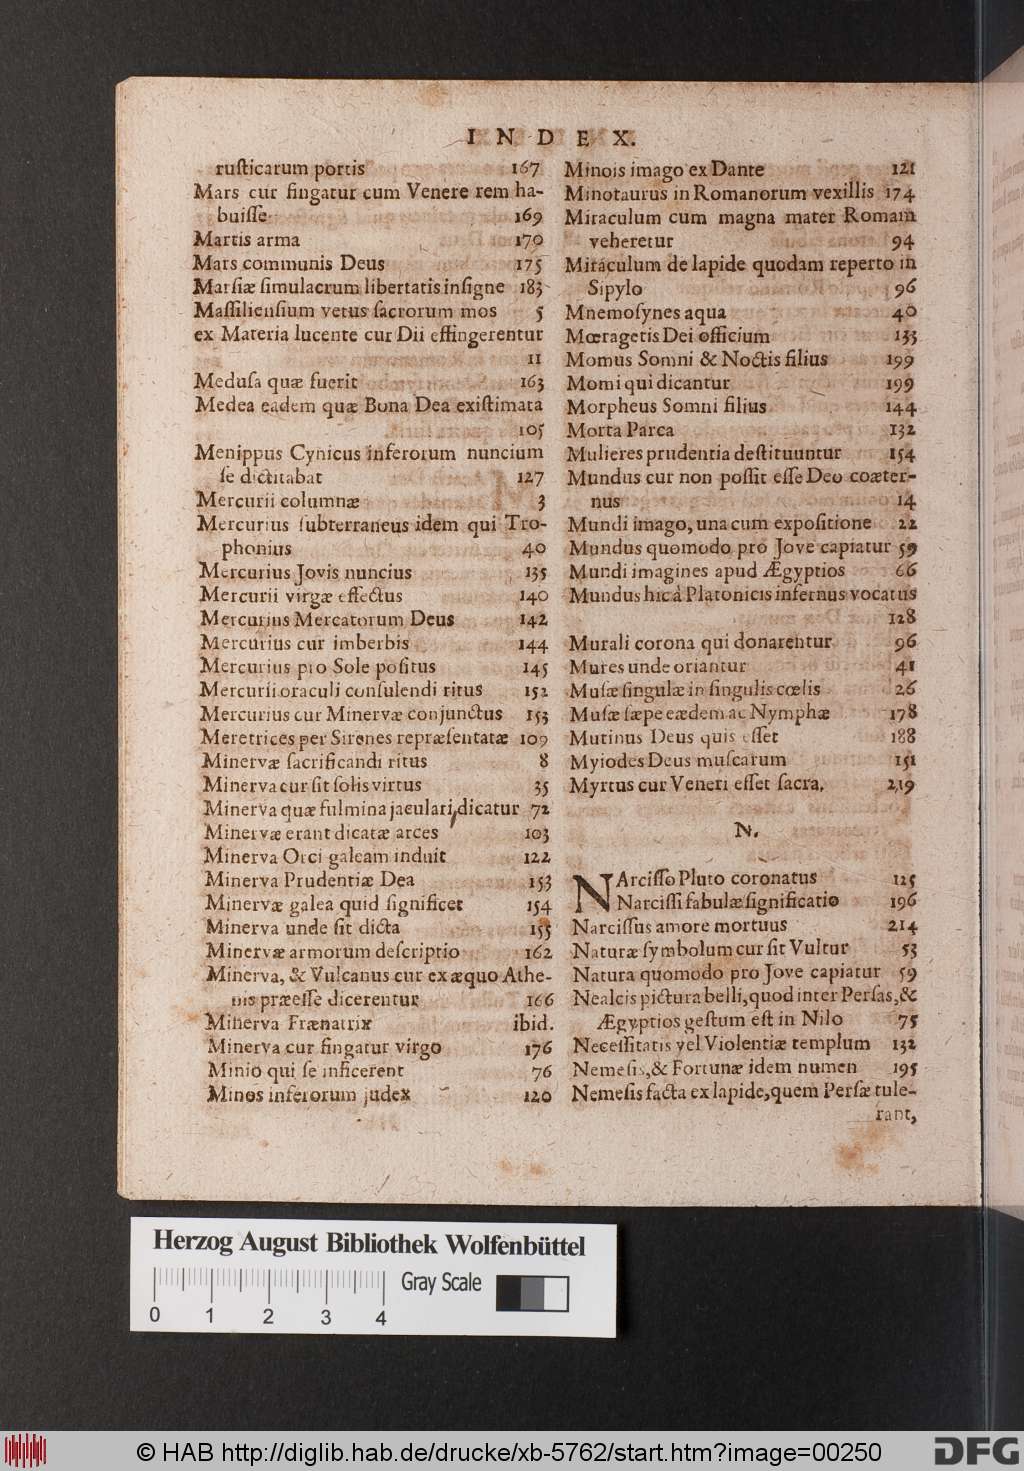 INDEX.
rusticarum portis 167
Mars cur fingatur cum Venere rem ha-
buisse 169
Martis arma 170
Mars communis Deus 175
Marsiæ simulacrum libertatis insigne 183
Massiliensium vetus sacrorum mos 5
ex Materia lucente cur Dii effingerentur
11
Medusa quæ fuerit 163
Medea eadem quæ Bona Dea existimata
105
Menippus Cynicus inferorum nuncium
se dictitabat 127
Mercurii columnæ 3
Mercurius subterraneus idem qui Tro-
phonius 40
Mercurius Jovis nuncius 135
Mercurii virgæ effectus 140
Mercurius Mercatorum Deus 142
Mercurius cur imberbis 144
Mercurius pro Sole positus 145
Mercurii oraculi consulendi ritus 152
Mercurius cur Minervæ conjunctus 153
Meretrices per Sirenes repræsentatæ 109
Minervæ sacrificandi ritus 8
Minerva cur sit solis virtus 35
Minerva quæ fulmina jaculari dicatur 72
Minervæ erant dicatæ arces 103
Minerva Orci galeam induit 122
Minerva Prudentiæ Dea 153
Minervæ galea quid significet 154
Minerva unde sit dicta 155
Minervæ armorum descriptio 162
Minerva, & Vulcanus cur ex æquo Athe-
nis præesse dicerentur 166
Minerva Frænatrix ibid.
Minerva cur fingatur virgo 176
Minio qui se inficerent 76
Minos inferorum judex 120
Minois imago ex Dante 121
Minotaurus in Romanorum vexillis 174
Miraculum cum magna mater Romam
veheretur 94
Miraculum de lapide quodam reperto in
Sipylo 96
Mnemosynes aqua 40
Mœragetis Dei officium 133
Momus Somni & Noctis filius 199
Momi qui dicantur 199
Morpheus Somni filius 144
Morta Parca 132
Mulieres prudentia destituuntur 154
Mundus cur non possit esse Deo coæter-
nus 14
Mundi imago, una cum expositione 22
Mundus quomodo pro Jove capiatur 59
Mundi imagines apud Ægyptios 66
Mundus hic á Platonicis infernus vocatus
128
Murali corona qui donarentur 96
Mures unde oriantur 41
Musæ singulæ in singulis cœlis 26
Musæ sæpe eædem ac Nymphæ 178
Mutinus Deus quis esset 188
Myiodes Deus muscarum 151
Myrtus cur Veneri esset sacra. 219
N.
NArcisso Pluto coronatus 125
Narcissi fabulæ significatio 196
Narcissus amore mortuus 214
Naturæ symbolum cur sit Vultur 53
Natura quomodo pro Jove capiatur 59
Nealcis pictura belli, quod inter Persas, &
Ægyptios gestum est in Nilo 75
Necessitatis vel Violentiæ templum 132
Nemesis, & Fortunæ idem numen 195
Nemesis facta ex lapide, quem Persæ tule-
rant,
Herzog August Bibliothek Wolfenbüttel
Gray Scale
0 1 2 3 4
© HAB http://diglib.hab.de/drucke/xb-5762/start.htm?image=00250
DFG